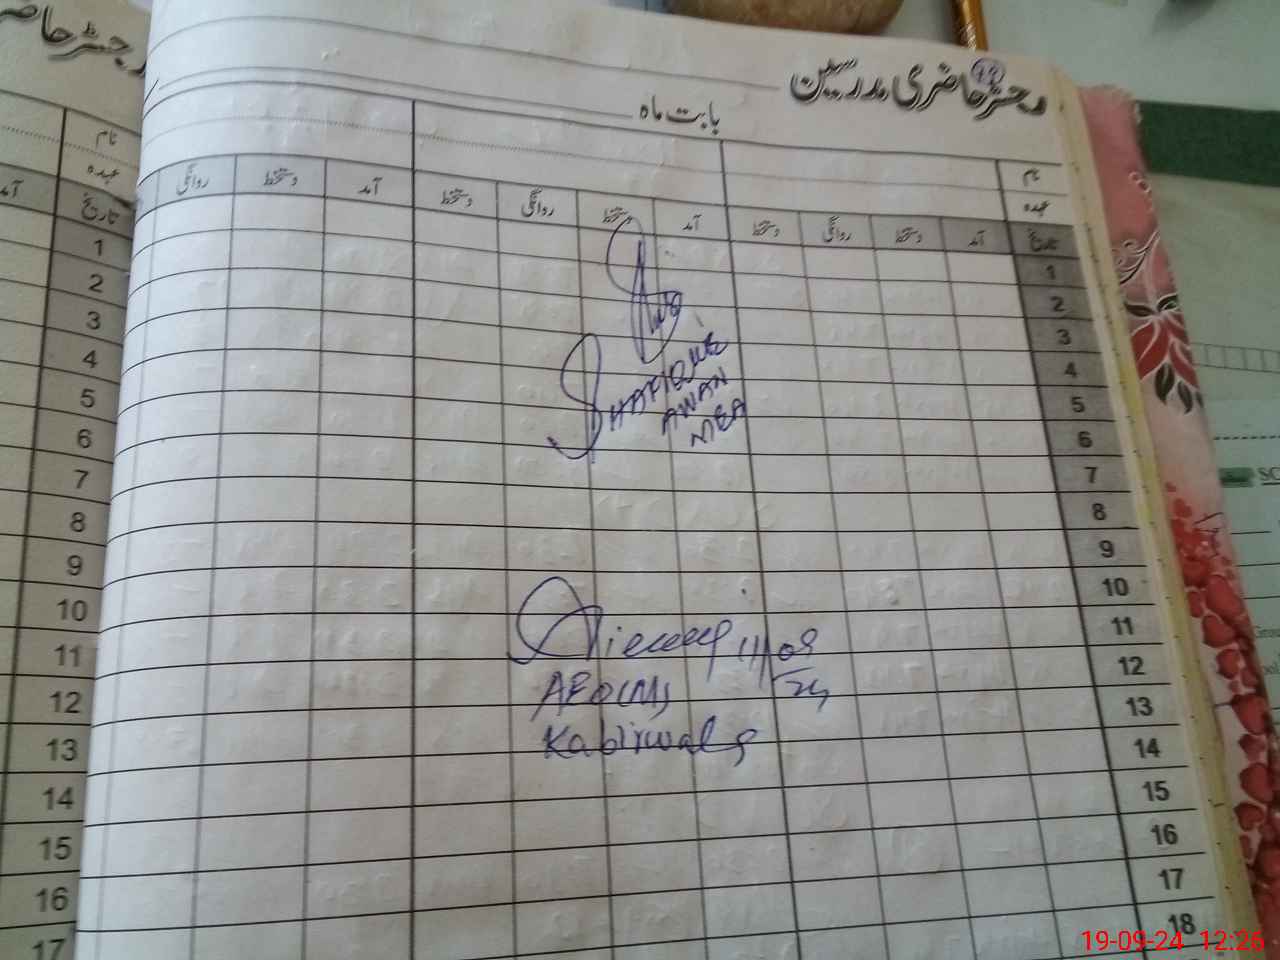 رجسٹر حاضری مدرسین
بابت ماہ
نام
عہدہ
تاریخ آمد دستخط روانگی دستخط آمد دستخط روانگی دستخط آمد دستخط روانگی
1
2
3
4
5
6
7
8
9
10
11
12
13
14
15
16
17
18
SHAFIQUE
AWAN
MEA
11/09/24
AEO(M)
Kabirwala
رجسٹر حاضر
نام
عہدہ
تاریخ آمد
1
2
3
4
5
6
7
8
9
10
11
12
13
14
15
16
17
SC
19-09-24 12:26